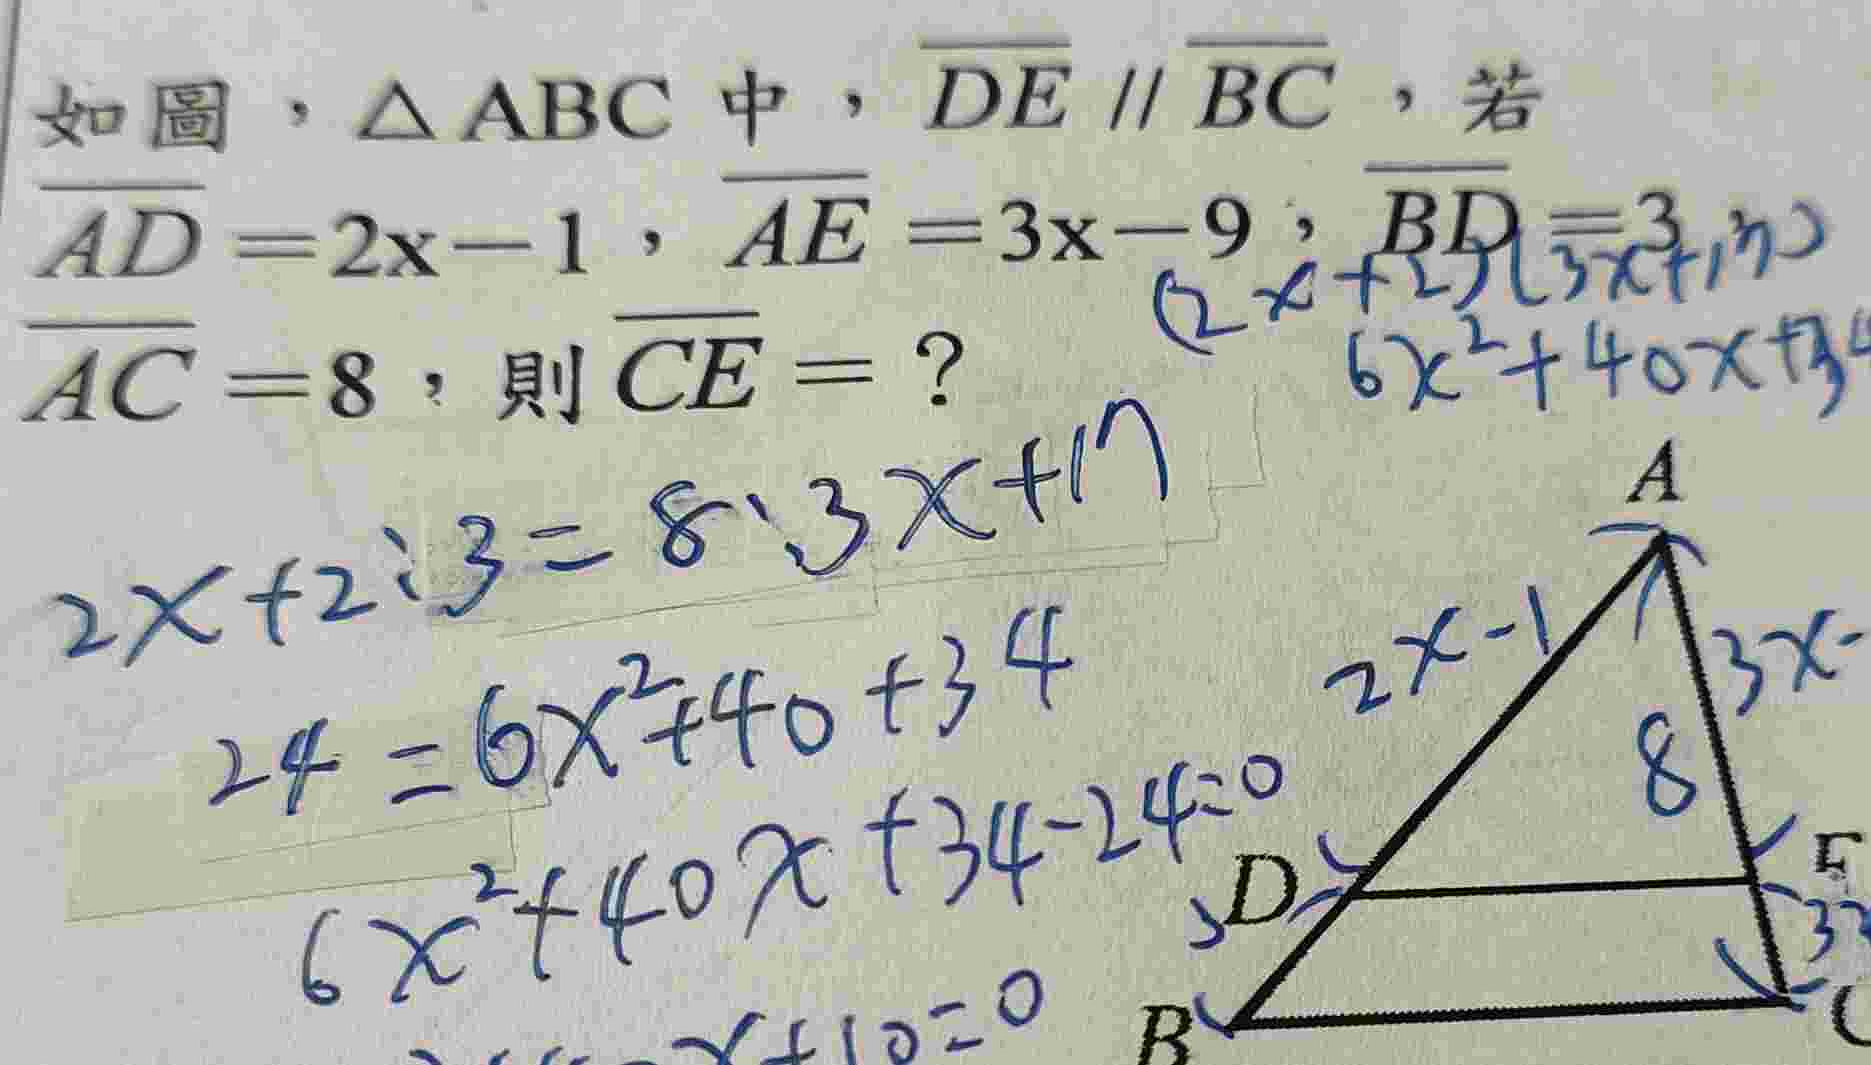 如圖，△ABC 中，DE // BC，若
AD＝2x－1，AE＝3x－9，BD＝3，
AC＝8，則 CE＝？
(2x+2)(3x+17)
6x²+40x+34
2x+2:3=8:3x+17
24=6x²+40+34
6x²+40x+34-24=0
x+10=0
A
2x-1
3x-
8
D
E
3
B
C